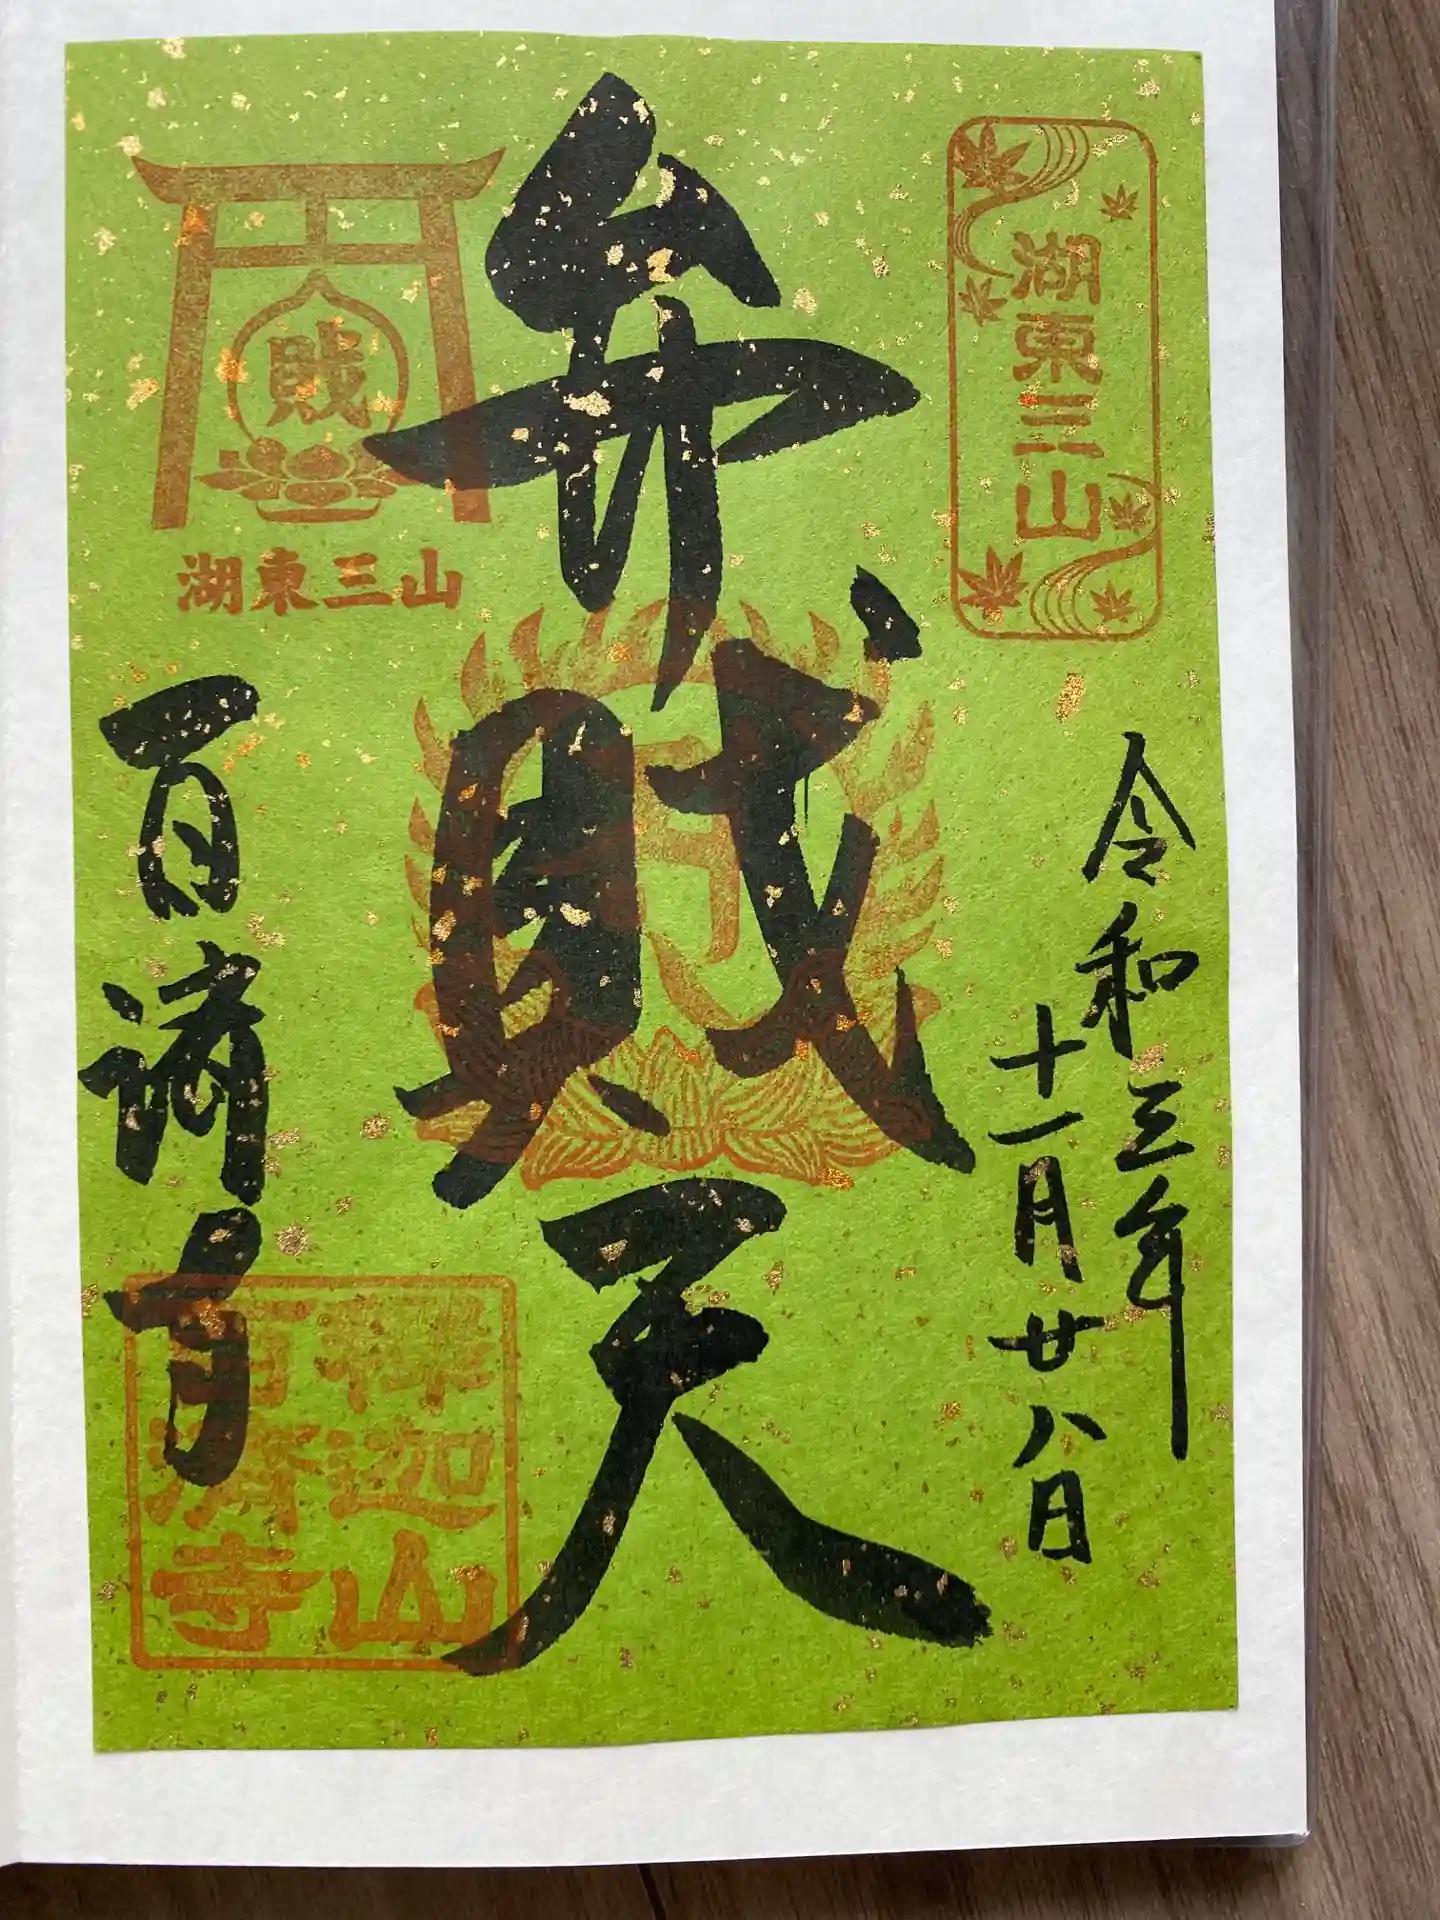 湖東三山
令和三年
十一月廿八日
弁財天
財
湖東三山
百済寺
釋迦山
百済寺